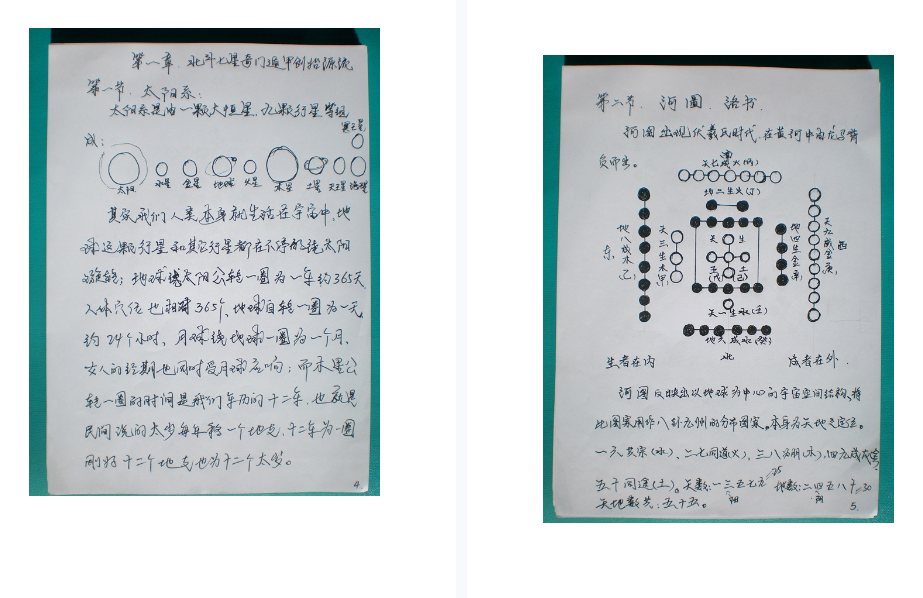 第一章、北斗七星奇门遁甲创始源统
第一节、太阳系:
太阳系是由一颗大恒星,九颗行星等组
成:
冥王星
太阳
水星
金星
地球
火星
木星
土星
天王星
海王星
其实我们人类本身就生活在宇宙中,地
球这颗行星和其它行星都在不停的绕太阳
旋转;地球绕太阳公转一圈为一年约365天
人体穴位也相对365个,地球自转一圈为一天
约24个小时、月球绕地球一圈为一个月,
女人的经期也同时受月球应响;而木星公
转一圈的时间是我们年历的十二年,也就是
民间说的太岁每年移一个地支,十二年为一圈
刚好十二个地支也为十二个太岁。
4
第二节、河圖、洛书、
河圖出现伏羲氏时代,在黄河中由龙马背
负而出。
南
天七成火(丙)
地二生火(丁)
东
地八成木(乙)
天三生木(甲)
天 五 生 土
(戊)(己)
地四生金(辛)
天九成金(庚)
西
天一生水(壬)
地六成水(癸)
北
生者在内
成者在外.
河圖反映出以地球为中心的宇宙空间结构,将
此圖案用作八卦九州的分布圖案。本身为天地之定位。
一六共宗(水)、二七同道(火)、三八为朋(木)、四九成友(金)
五十同途(土)。天数:一三五七九=25 地数:二四六八十=30
阳
阴
天地数共:五十五。
5